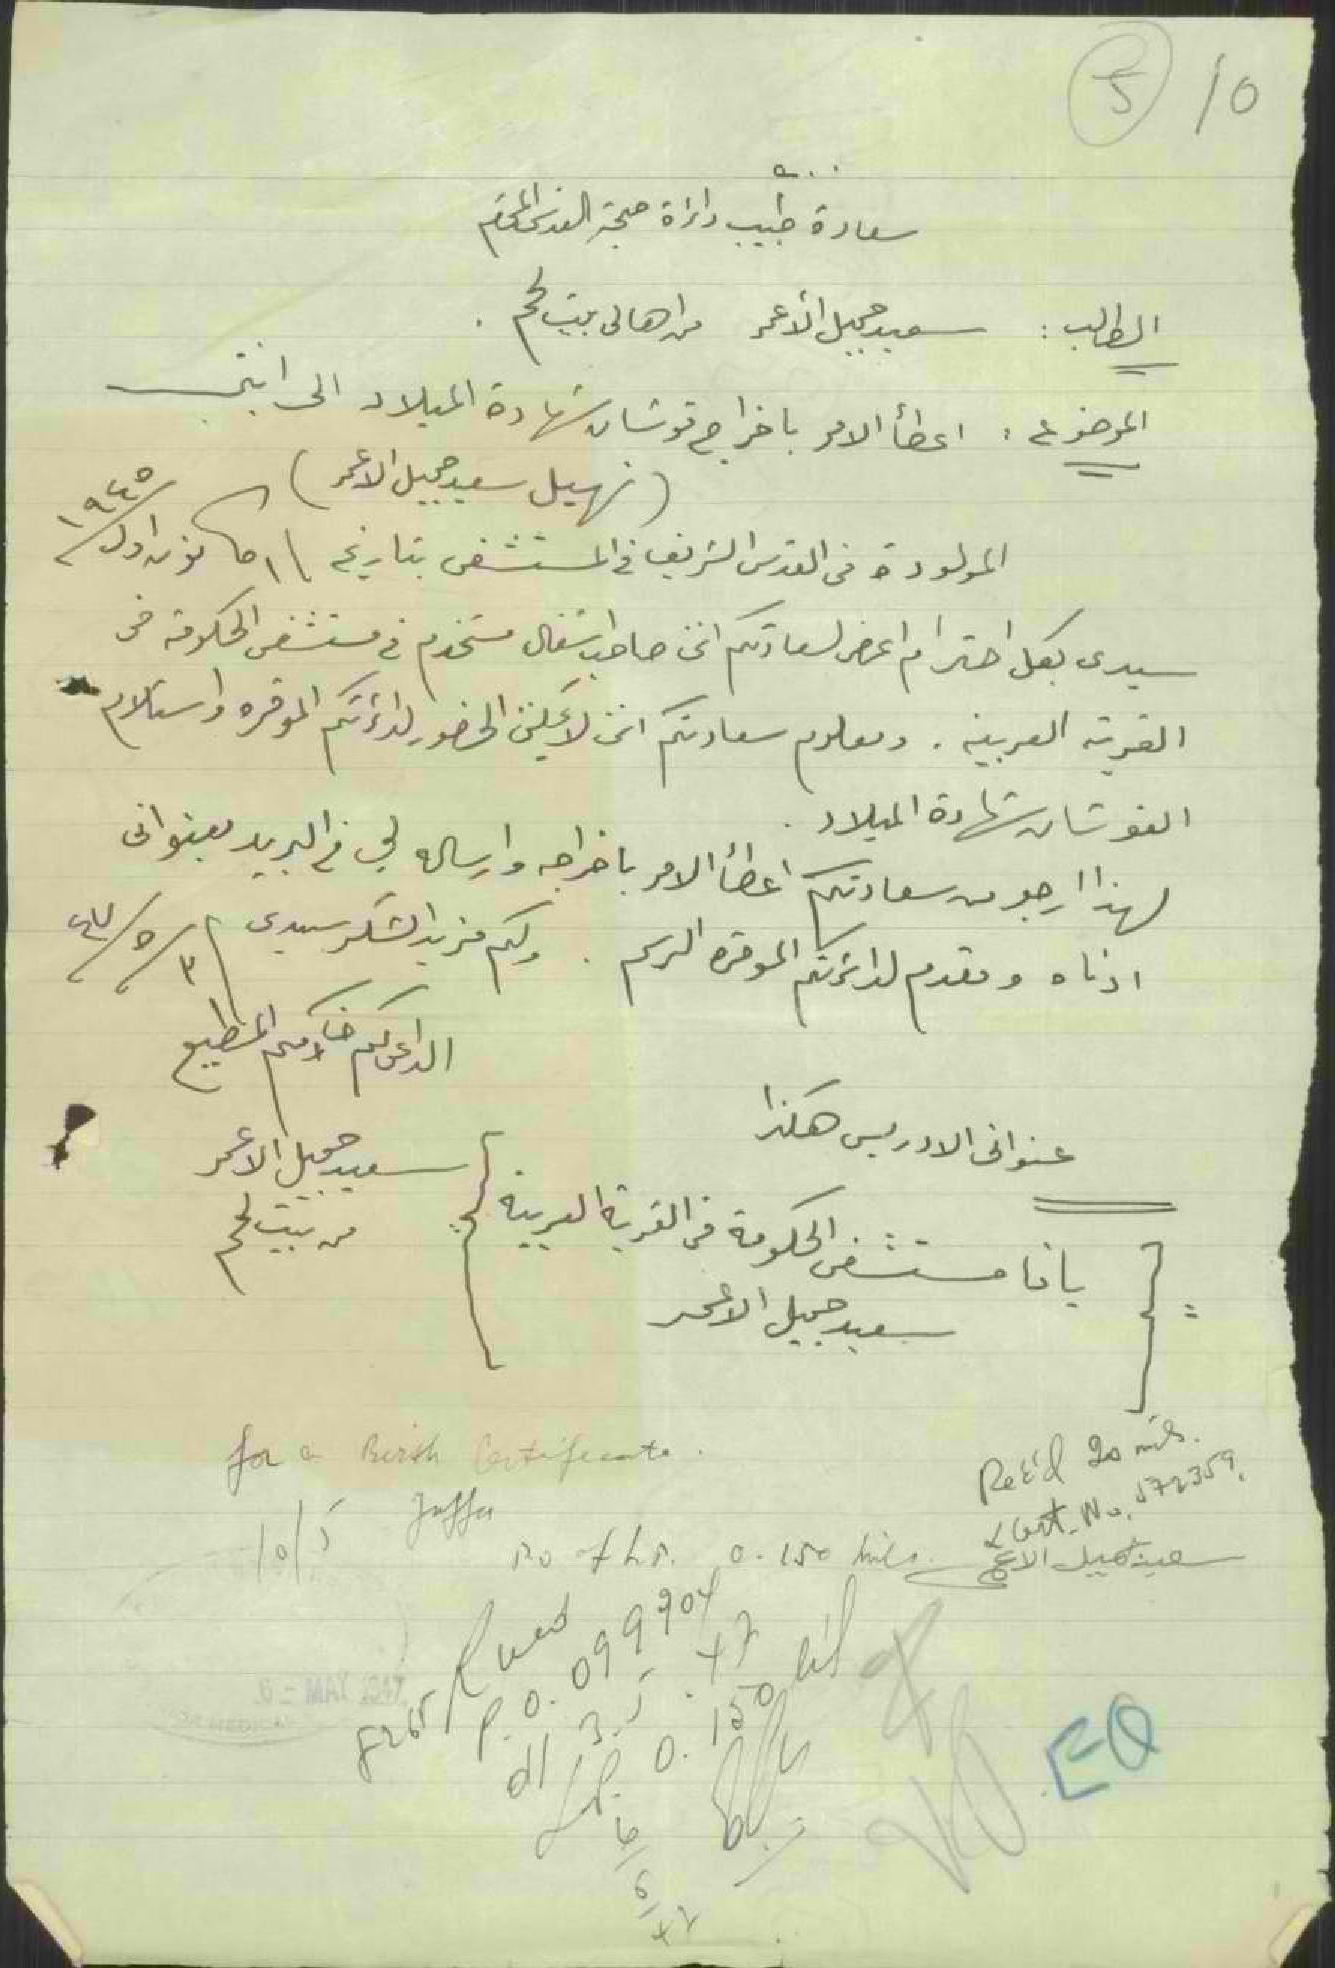 5 10
سعادة طبيب دائرة صحة القدس المحترم
الطالب : سعيد جميل الأعمر من اهالى بيت لحم .
الموضوع : اعطأ الامر باخراج قوشان شهادة الميلاد الى ابنتى
( نهيل سعيد جميل الاعمر )
المولودة فى القدس الشريف في المستشفى بتاريخ كانون اول ١٩٤٥
سيدى بكل احترام اعرض لسعادتكم اننى صاحب اشغال مستخدم في مستشفى الحكومة فى
القرية العربية . ومعلوم سعادتكم اننى لا يمكننى الحضور لدائرتكم الموقره واستلام
القوشان شهادة الميلاد .
لهذا ارجو من سعادتكم اعطأ الامر باخراجه وارساله لي في البريد بعنوانى
ادناه ومقدم لدائرتكم الموقره الرسم . ولكم مزيد الشكر سيدى ٣/٥/٤٧
الداعى لكم خادمكم المطيع
سعيد جميل الاعمر
من بيت لحم
عنوانى الادريس هكذا
يافا مستشفى الحكومة فى القرية العربية
سعيد جميل الاعمر
for a Birth Certificate.
Jaffa
10/5
Rec'd 20 mils.
Cert. No. 572359.
سعيد جميل الاعمر
0.150 mils.
P.O. 099904
d/ 3.5.47
LP. 0.150 mil
EQ